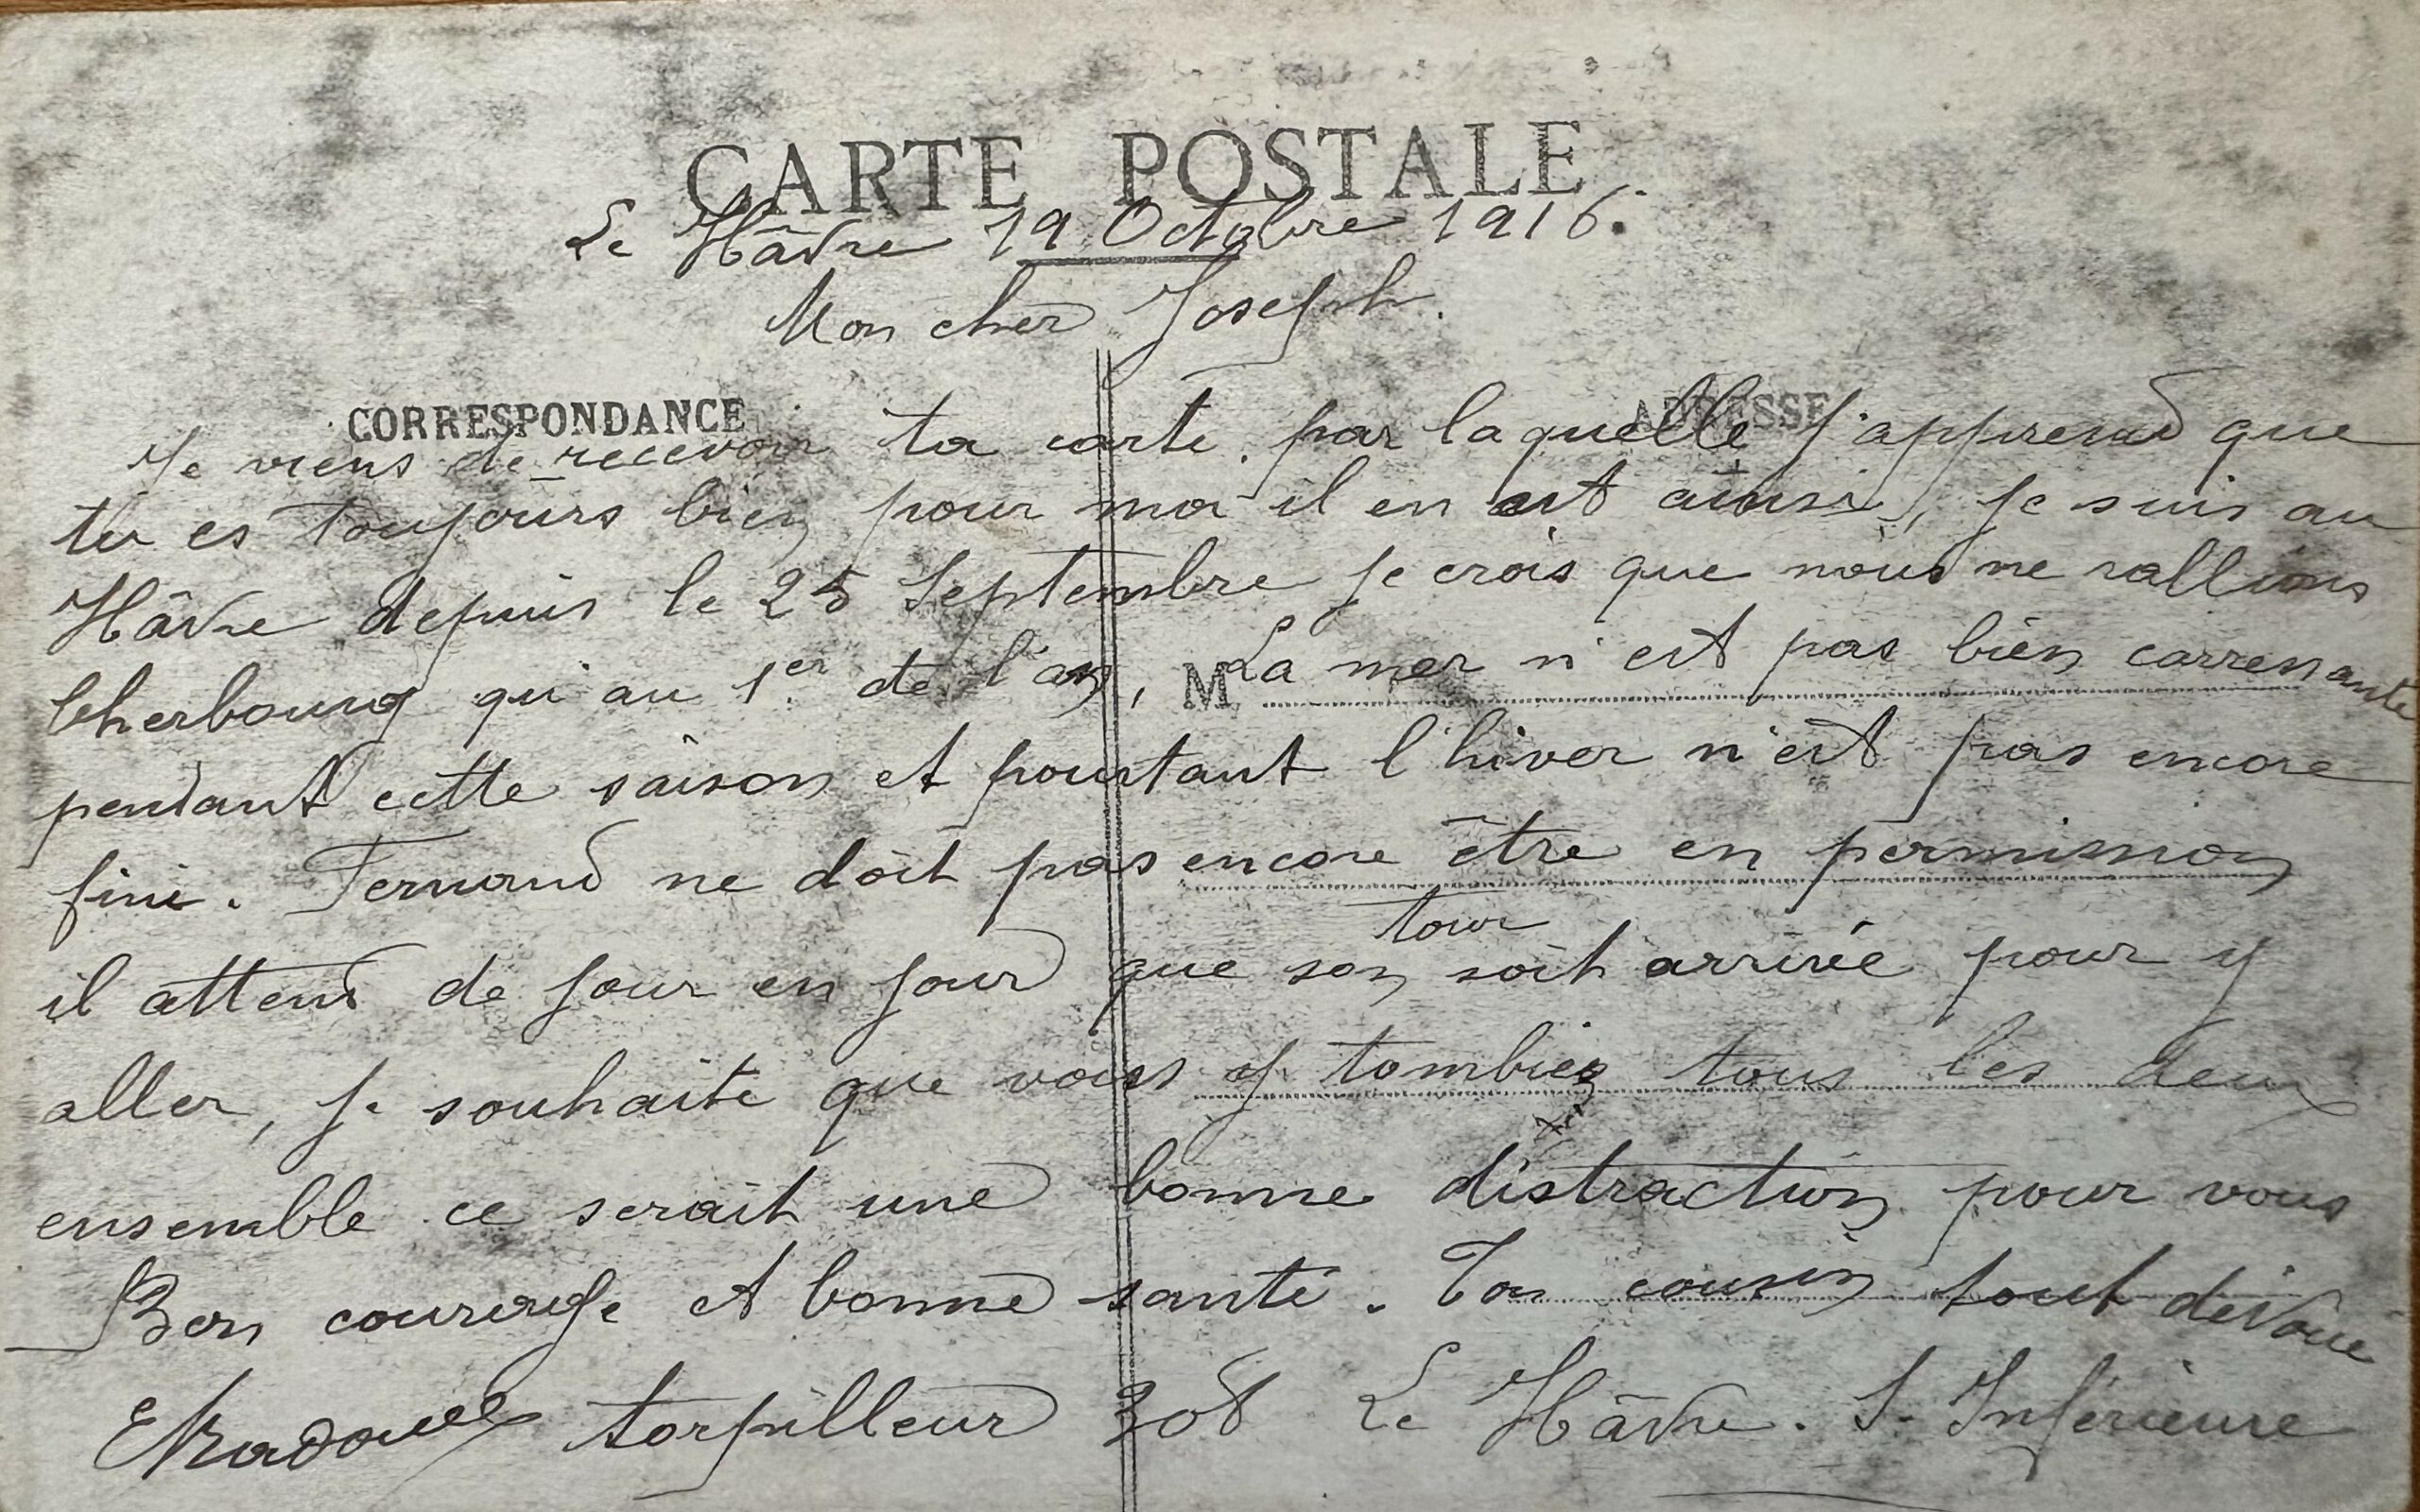 CARTE POSTALE
Le Hâvre 19 Octobre 1916.
Mon cher Joseph.
CORRESPONDANCE
ADRESSE
Je viens de recevoir ta carte. par laquelle j'apprend que
tu es toujours bien pour moi il en est ainsi, je suis au
Hâvre depuis le 25 Septembre je crois que nous ne rallions
Cherbourg qu'au 1er de l'an, La mer n'est pas bien carressante
M
pendant cette saison et pourtant l'hiver n'est pas encore
fini. Fernand ne doit pas encore être en permission
il attend de jour en jour que son tour soit arrivée pour y
aller, je souhaite que vous y tombiez tous les deux
ensemble ce serait une bonne distraction pour vous
Bon courage et bonne santé. Ton cousin tout dévoué
torpilleur 308 Le Hâvre. S. Inférieure